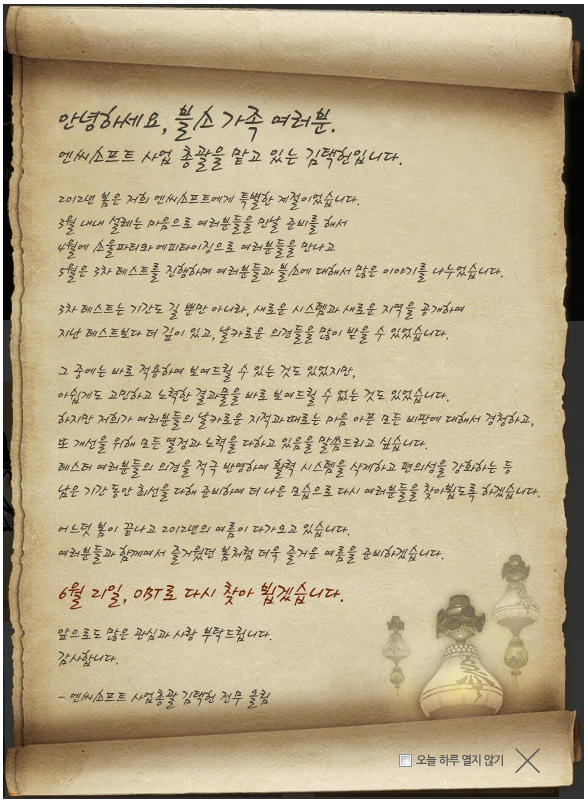 안녕하세요, 블소 가족 여러분.
엔씨소프트 사업 총괄을 맡고 있는 김택헌입니다.
2012년 봄은 저희 엔씨소프트에게 특별한 계절이었습니다.
3월 내내 설레는 마음으로 여러분들을 만날 준비를 해서
4월에 소울파티와 에피타이징으로 여러분들을 만나고
5월은 3차 테스트를 진행하며 여러분들과 블소에 대해서 많은 이야기를 나누었습니다.
3차 테스트는 기간도 길 뿐만 아니라, 새로운 시스템과 새로운 지역을 공개하여
지난 테스트보다 더 깊이 있고, 날카로운 의견들을 많이 받을 수 있었습니다.
그 중에는 바로 적용하여 보여드릴 수 있는 것도 있었지만,
아쉽게도 고민하고 노력한 결과물을 바로 보여드릴 수 없는 것도 있었습니다.
하지만 저희가 여러분들의 날카로운 지적과 때로는 마음 아픈 모든 비판에 대해서 경청하고,
또 개선을 위해 모든 열정과 노력을 다하고 있음을 말씀드리고 싶습니다.
테스터 여러분들의 의견을 적극 반영하여 활력 시스템을 삭제하고 편의성을 강화하는 등
남은 기간 동안 최선을 다해 준비하여 더 나은 모습으로 다시 여러분들을 찾아뵙도록 하겠습니다.
어느덧 봄이 끝나고 2012년의 여름이 다가오고 있습니다.
여러분들과 함께여서 즐거웠던 봄처럼 더욱 즐거운 여름을 준비하겠습니다.
6월 21일, OBT로 다시 찾아 뵙겠습니다.
앞으로도 많은 관심과 사랑 부탁드립니다.
감사합니다.
- 엔씨소프트 사업총괄 김택헌 전무 올림
오늘 하루 열지 않기